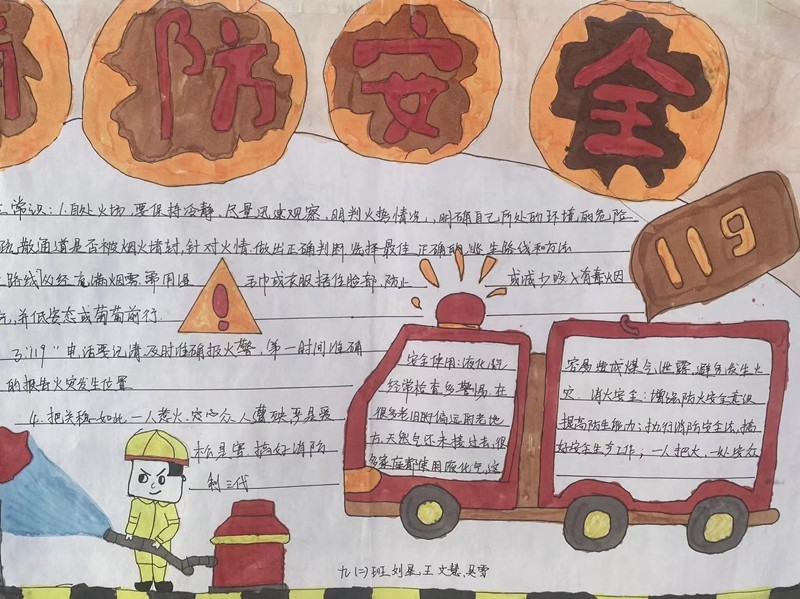 防安全
119
常识:1.自处火场,要保持冷静,尽量迅速观察、明判火势情况,明确自己所处的环境的危险
疏散通道是否被烟火堵封,针对火情,做出正确判断,选择最佳、正确的逃生路线和方法
路线]必经充满烟雾,要用湿毛巾或衣服捂住脸部,防止或减少吸入有毒烟
气,并低姿态或匍匐前行.
3.119"电话要记清及时准确报火警,第一时间准确
的报告火灾发生位置
4.把关
一人
松
害 搞好消防
利三代
安全使用:液化
经常检查多警惕,在
很多老旧的偏远的老地
方,天然气还未接过去,很
多家庭都使用液化气,这
容易造成煤气泄露,避免发生火
灾,消火安全:增强防火安全意识
提高防生能力:执行消防安全法,搞
好安全生产工作,一人把火,一处
九(二)班 刘 王文慧